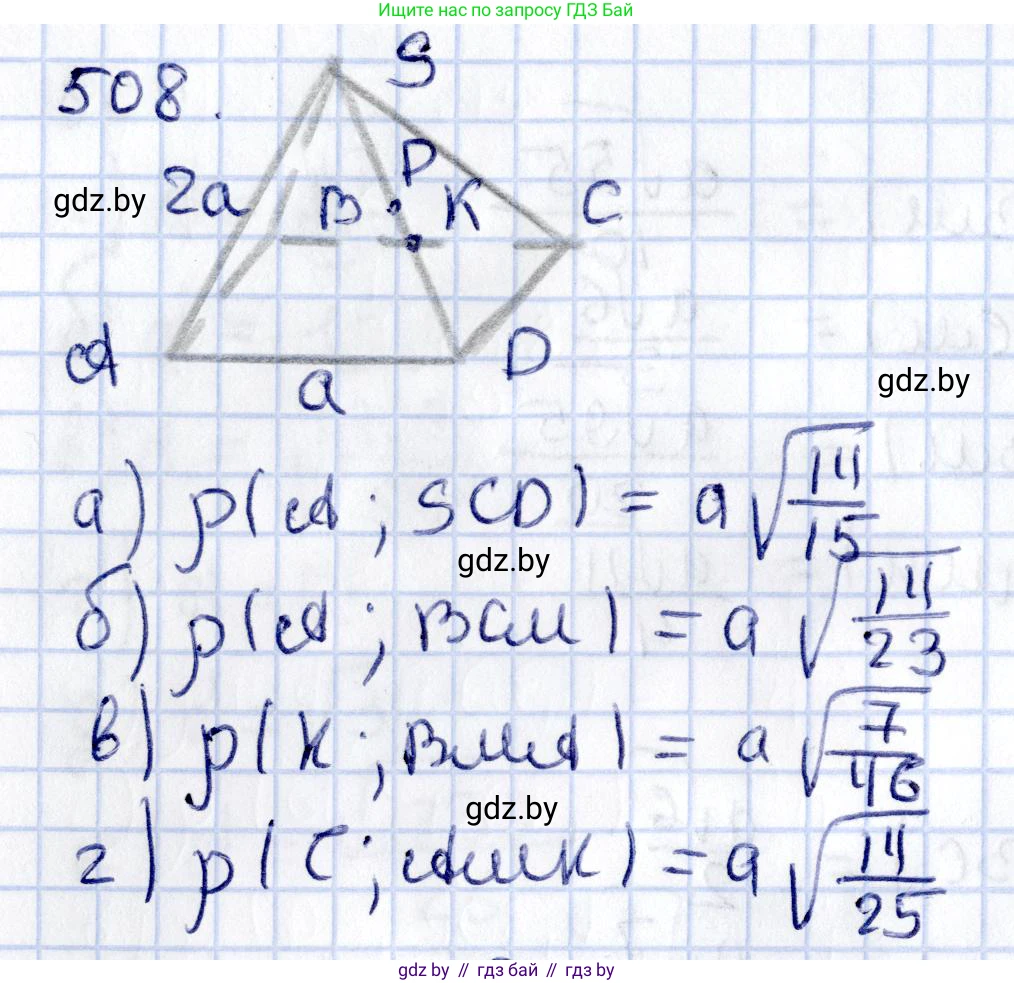 Ищите нас по запросу ГДЗ Бай
508.
S
P
gdz.by
2a
B
K
C
A
D
gdz.by
a
а) ρ(A; SCD) = a√(14/15)
gdz.by
б) ρ(A; BCM) = a√(14/23)
в) ρ(K; BMA) = a√(7/46)
gdz.by
г) ρ(C; AMK) = a√(14/25)
gdz.by // гдз бай // гдз by